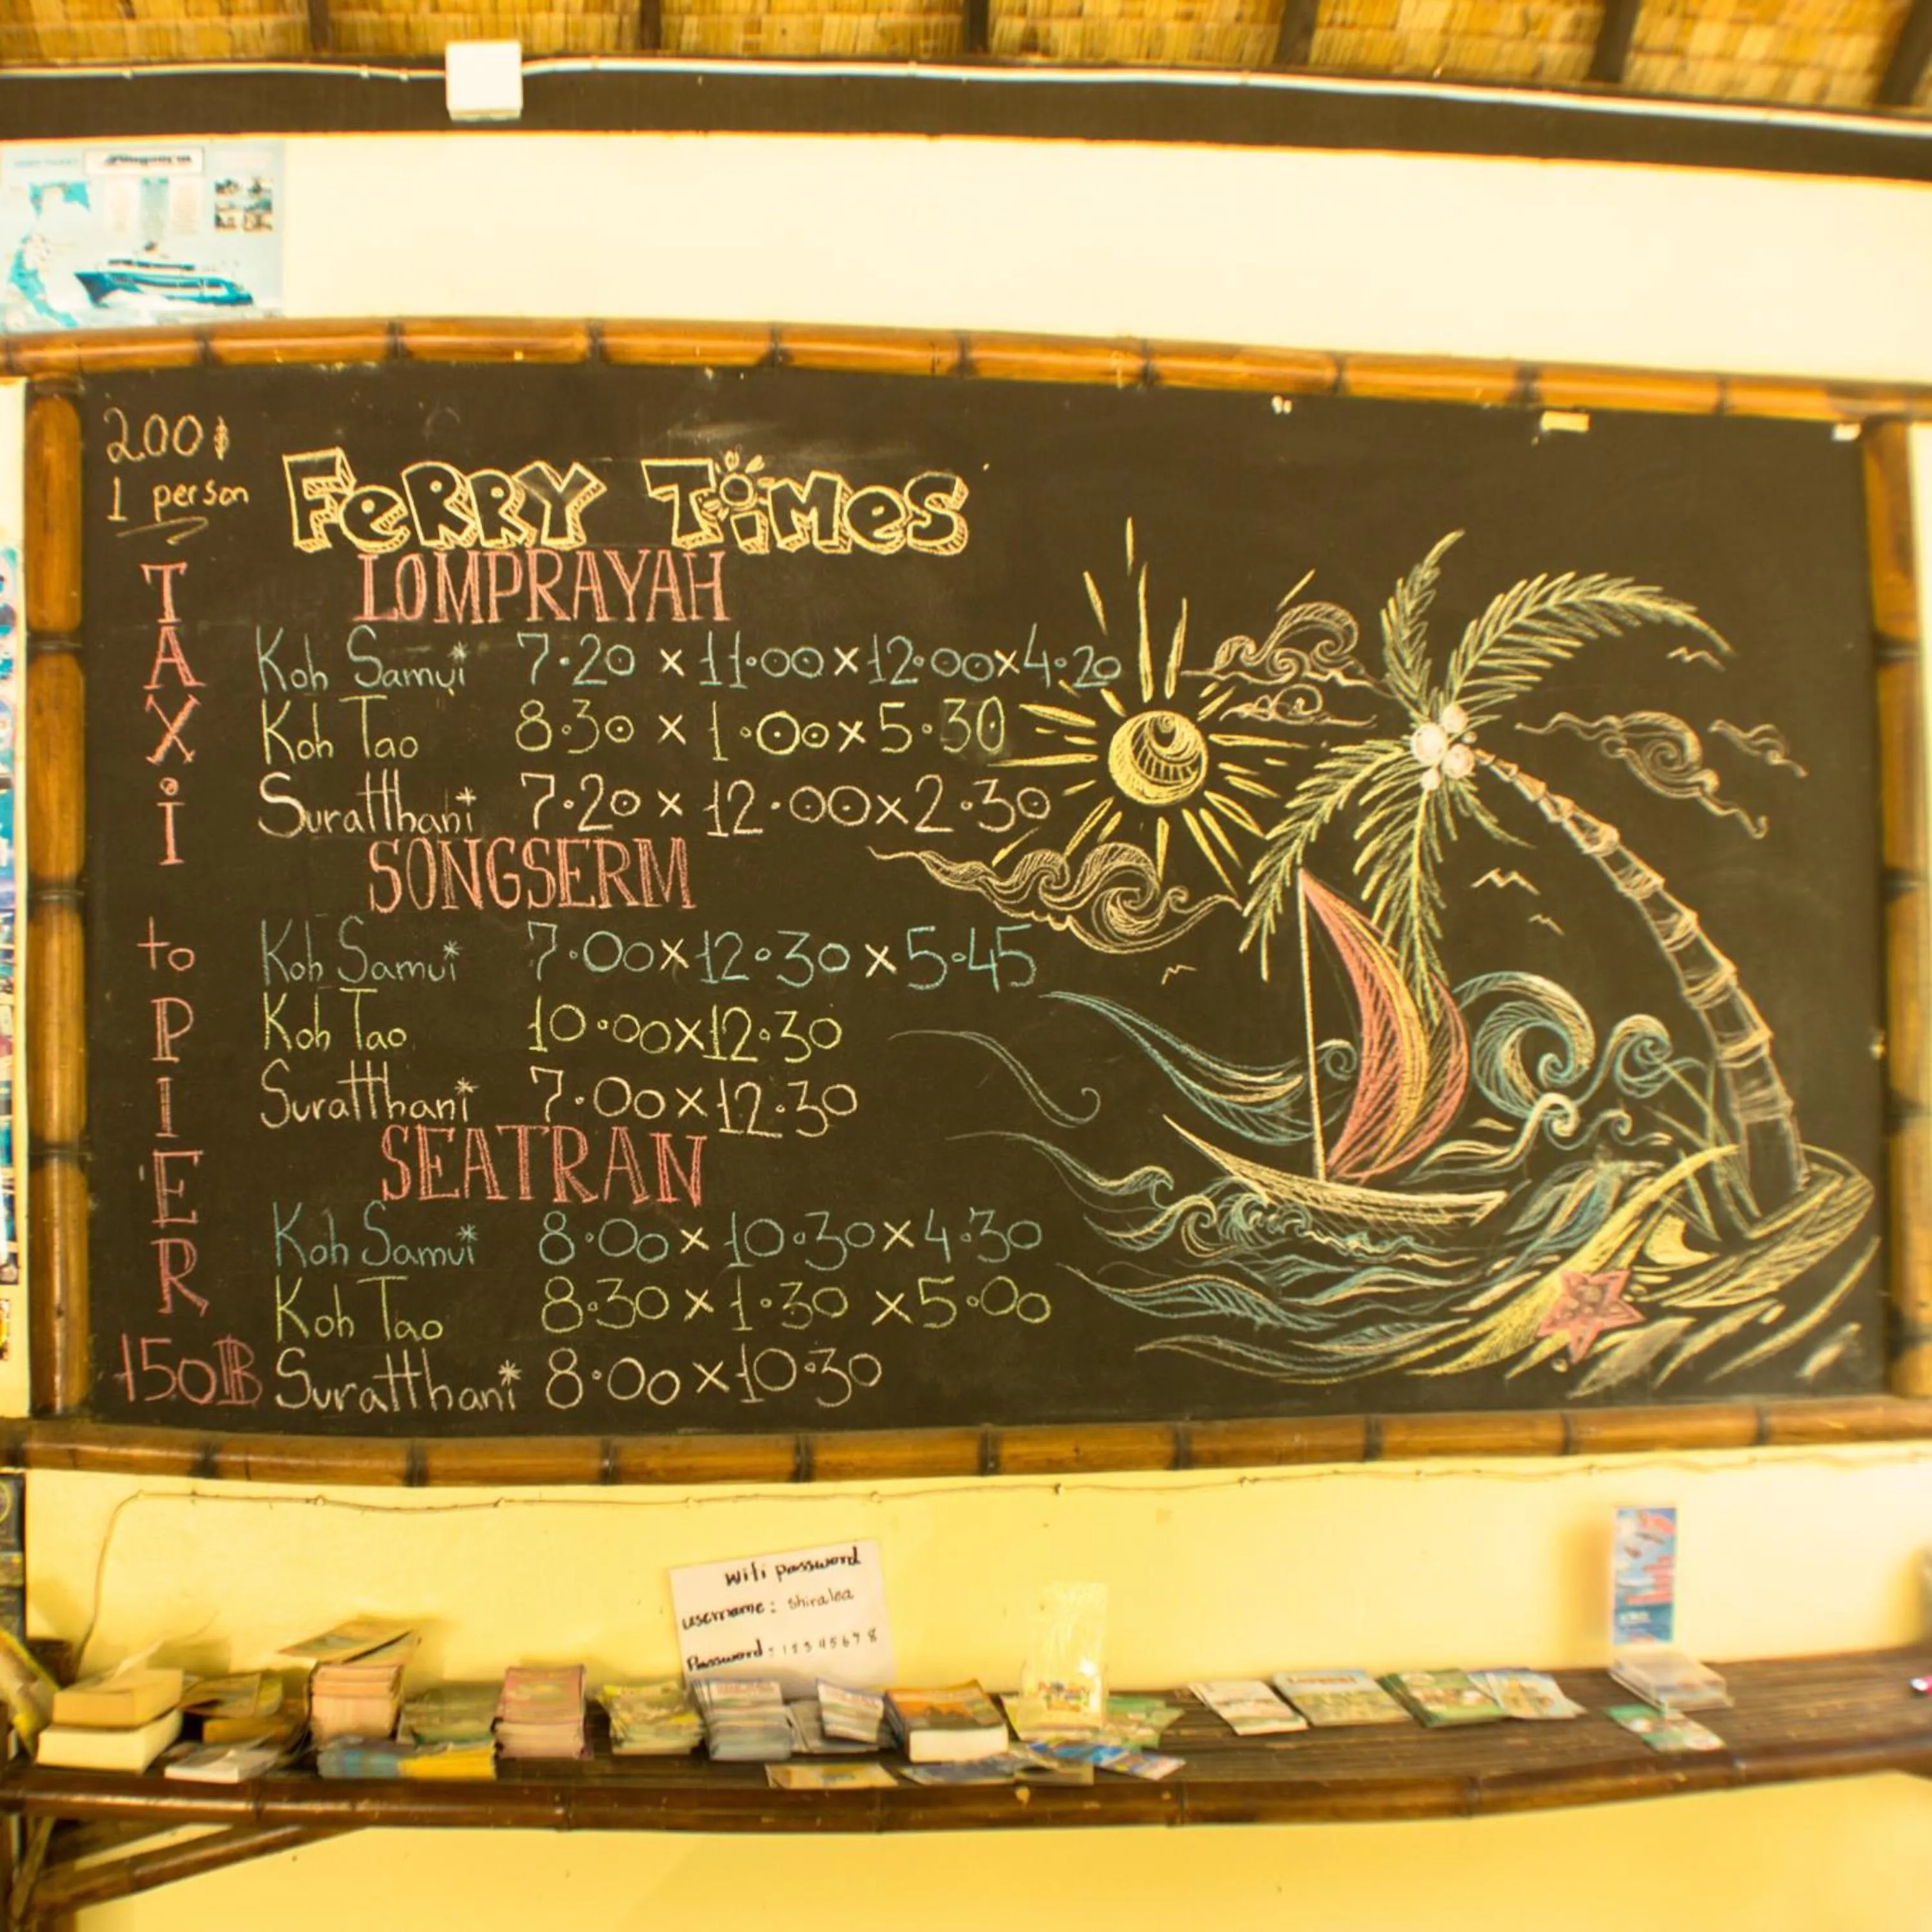 200฿
1 person
FeRRY TiMes
LOMPRAYAH
Koh Samui 7.20 x 11.00 x 12.00 x 4.20
Koh Tao 8.30 x 1.00 x 5.30
Suratthani 7.20 x 12.00 x 2.30
SONGSERM
Koh Samui 7.00 x 12.30 x 5.45
Koh Tao 10.00 x 12.30
Suratthani 7.00 x 12.30
SEATRAN
Koh Samui 8.00 x 10.30 x 4.30
Koh Tao 8.30 x 1.30 x 5.00
Suratthani 8.00 x 10.30
TAXi to PIER
150฿
Wifi password
username: shiralea
Password: 12345678